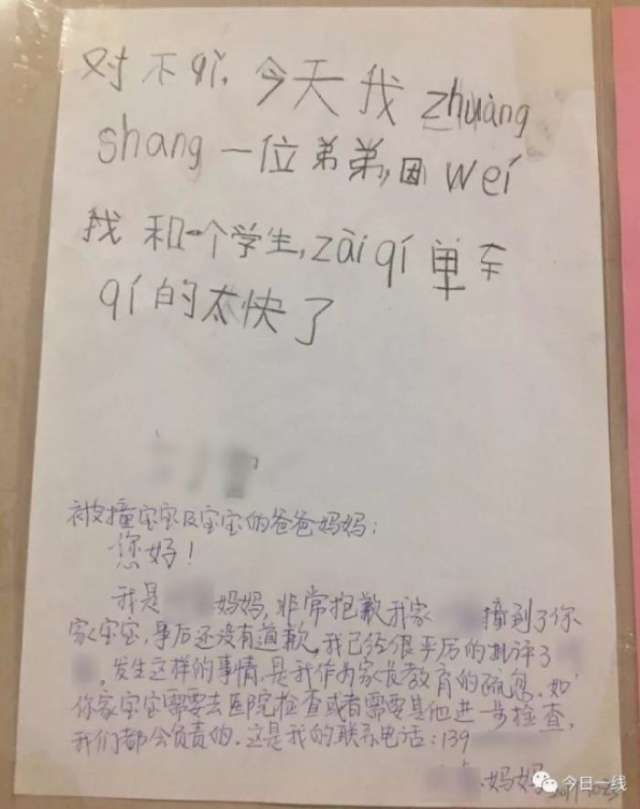 对不qǐ,今天我zhuàng
shang一位弟弟,因weí
我和一个学生,zài qí单车
qí的太快了
被撞宝宝及宝宝的爸爸妈妈:
您好!
我是 妈妈,非常抱歉我家 撞到了你
家宝宝,事后还没有道歉,我已经很严厉的批评了
,发生这样的事情,是我作为家长教育的疏忽.如
你家宝宝需要去医院检查或者需要其他进一步检查,
我们都会负责的.这是我的联系电话:139
妈妈
今日一线